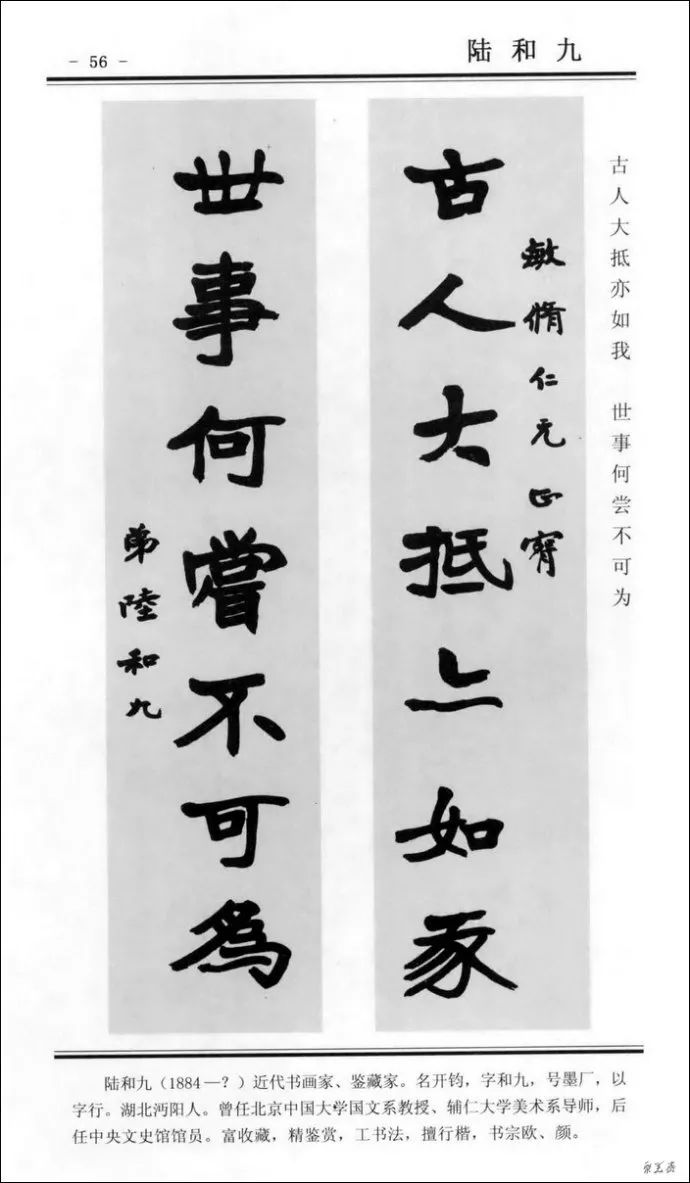 - 56 -
陆和九
古人大抵亦如我 世事何尝不可为
敏脩仁兄正
古人大抵亦如我
世事何嚐不可為
弟陸和九
陆和九（1884—？）近代书画家、鉴藏家。名开钧，字和九，号墨厂，以
字行。湖北沔阳人。曾任北京中国大学国文系教授、辅仁大学美术系导师，后
任中央文史馆馆员。富收藏，精鉴赏，工书法，擅行楷，书宗欧、颜。